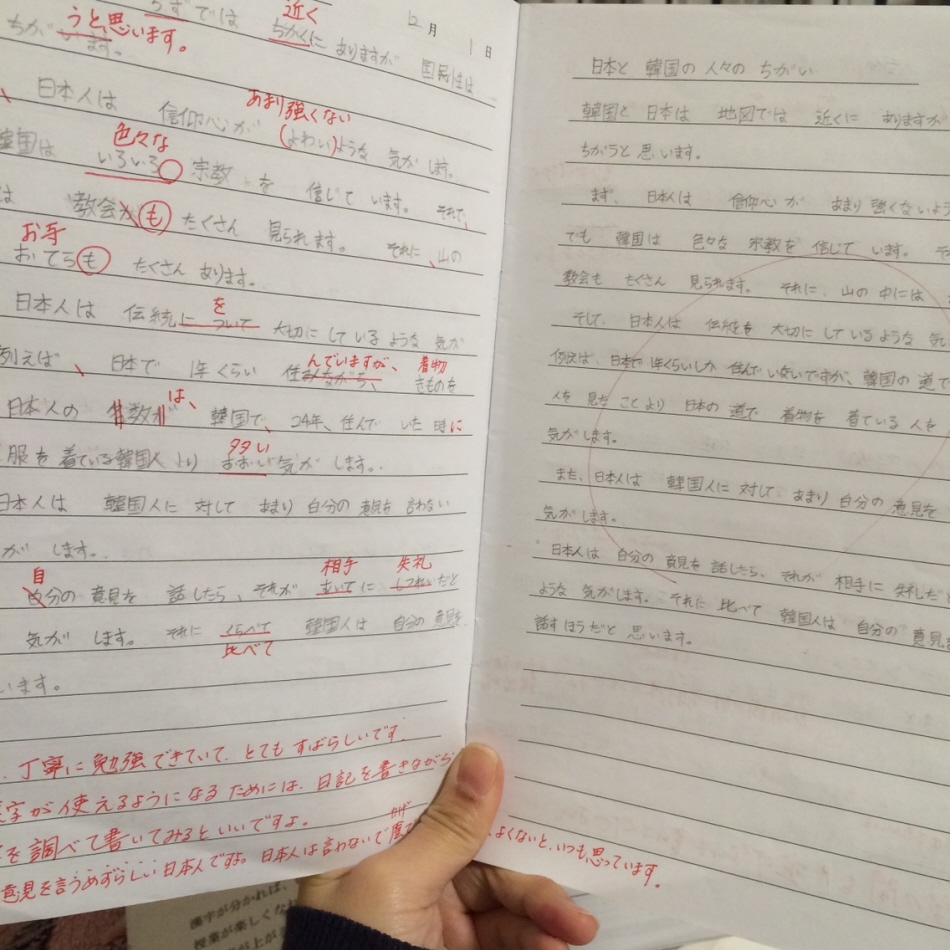 近く
ちずでは ちかくに ありますが 国民性は
12月 1日
うと思います。
ちがいます。
あまり強くない
日本人は 信仰心が (よわい)ような 気が します。
色々な
韓国は いろいろ 宗教 を 信じて います。 それで、
は 教会がも たくさん 見られます。 それに、山の
お寺
おてらも たくさん あります。
を
日本人は 伝統について 大切に している ような 気が
んでいますが、 着物
例えば、 日本で 1年くらい 住みながら、 きものを
は、
日本人の 数が 韓国で、24年、住んで いた 時に
多い
服を 着ている韓国人 より おおい 気が します。
日本人は 韓国人に 対して あまり 自分の 意見を 言わない
が します。
自 相手 失礼
自分の 意見を 話したら、それが あいてに しつれいだと
気が します。それに くらべて 韓国人は 自分の 意見を
比べて
います。
、丁寧に 勉強 できていて、とても すばらしいです。
漢字が 使えるようになる ためには、日記を 書きながら
を 調べて 書いて みると いいですよ。
意見を言うめずらしい日本人ですよ。日本人は言わないで
かげ
、よくないと、いつも 思っています。
日本と 韓国の 人々の ちがい
韓国と 日本は 地図では 近くに ありますが
ちがうと 思います。
まず、日本人は 信仰心が あまり 強くないよう
でも 韓国は 色々な 宗教を 信じて います。 そ
教会も たくさん 見られます。それに、山の 中には
そして、日本人は 伝統を 大切に している ような 気
例えば、日本で 1年くらいしか 住んで いないですが、韓国の 道で
人を 見る ことより 日本の 道で 着物を 着ている 人を
気がします。
また、日本人は 韓国人に 対して あまり 自分の 意見を
気がします。
日本人は 自分の 意見を 話したら、それが 相手に 失礼だと
ような 気がします。それに 比べて 韓国人は 自分の 意見を
話すほうだと 思います。
漢字が分かれば、